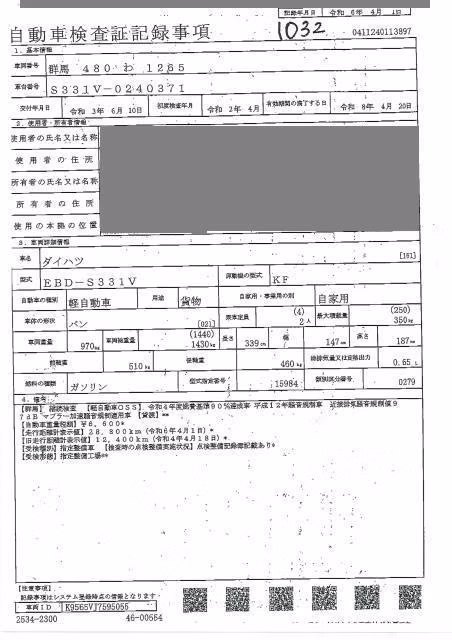 記録年月日 令和 6年 4月 1日
自動車検査証記録事項 1032 0411240113897
1. 基本情報
車両番号 群馬 480 わ 1265
車台番号 S331V-0240371
交付年月日 令和 3年 6月 10日 初度検査年月 令和 2年 4月 有効期間の満了する日 令和 8年 4月 20日
2. 使用者・所有者情報
使用者の氏名又は名称
使用者の住所
所有者の氏名又は名称
所有者の住所
使用の本拠の位置
3. 車両詳細情報
車名 ダイハツ [161]
型式 EBD-S331V 原動機の型式 KF
自動車の種別 軽自動車 用途 貨物 自家用・事業用の別 自家用
車体の形状 バン [021] 乗車定員 (4) 2人 最大積載量 (250) 350kg
車両重量 970kg 車両総重量 (1440) 1430kg 長さ 339cm 幅 147cm 高さ 187cm
前軸重 510kg 後軸重 460kg 総排気量又は定格出力 0.65L
燃料の種類 ガソリン 型式指定番号 15984 類別区分番号 0279
4. 備考
[群馬] 継続検査 [軽自動車OSS] 令和4年度燃費基準90%達成車 平成12年騒音規制車 近接排気騒音規制値9
7dB マフラー加速騒音規制適用車 [貨渡]**
[自動車重量税額] ¥6,600*
[走行距離計表示値] 28,800km (令和6年4月1日)*
[旧走行距離計表示値] 12,400km (令和4年4月18日)*
[受検種別] 指定整備車 [検査時の点検整備実施状況] 点検整備記録簿記載あり*
[受検形態] 指定整備工場**
[注意事項]
記録事項はシステム登録時点の情報となります
車両ID K9565VJ7595055
2534-2300 46-00654